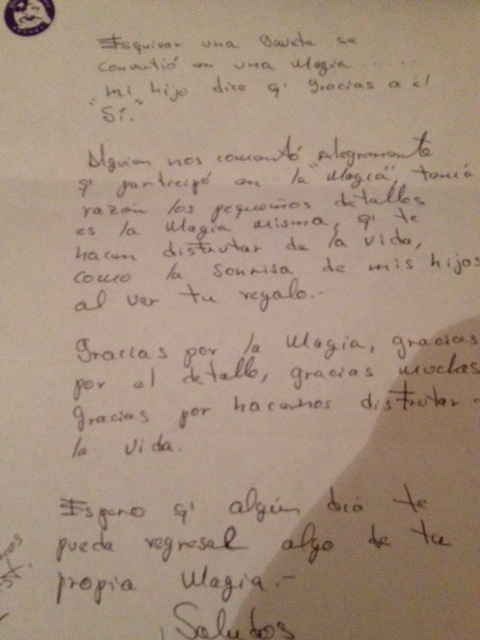 Esquivar una Gaveta se
convirtió en una Magia ......
"mi hijo dice q' gracias a él
Sí."
Alguien nos comentó alegremente
q' participó en la "Magia", tenía
razón los pequeños detalles
es la Magia misma, q' te
hacen disfrutar de la vida,
como la sonrisa de mis hijos
al ver tu regalo.-
Gracias por la Magia, gracias
por el detalle, gracias muchas
gracias por hacernos disfrutar -
la vida.
Espero q' algún día te
pueda regresar algo de tu
propia Magia.-
¡Saludos